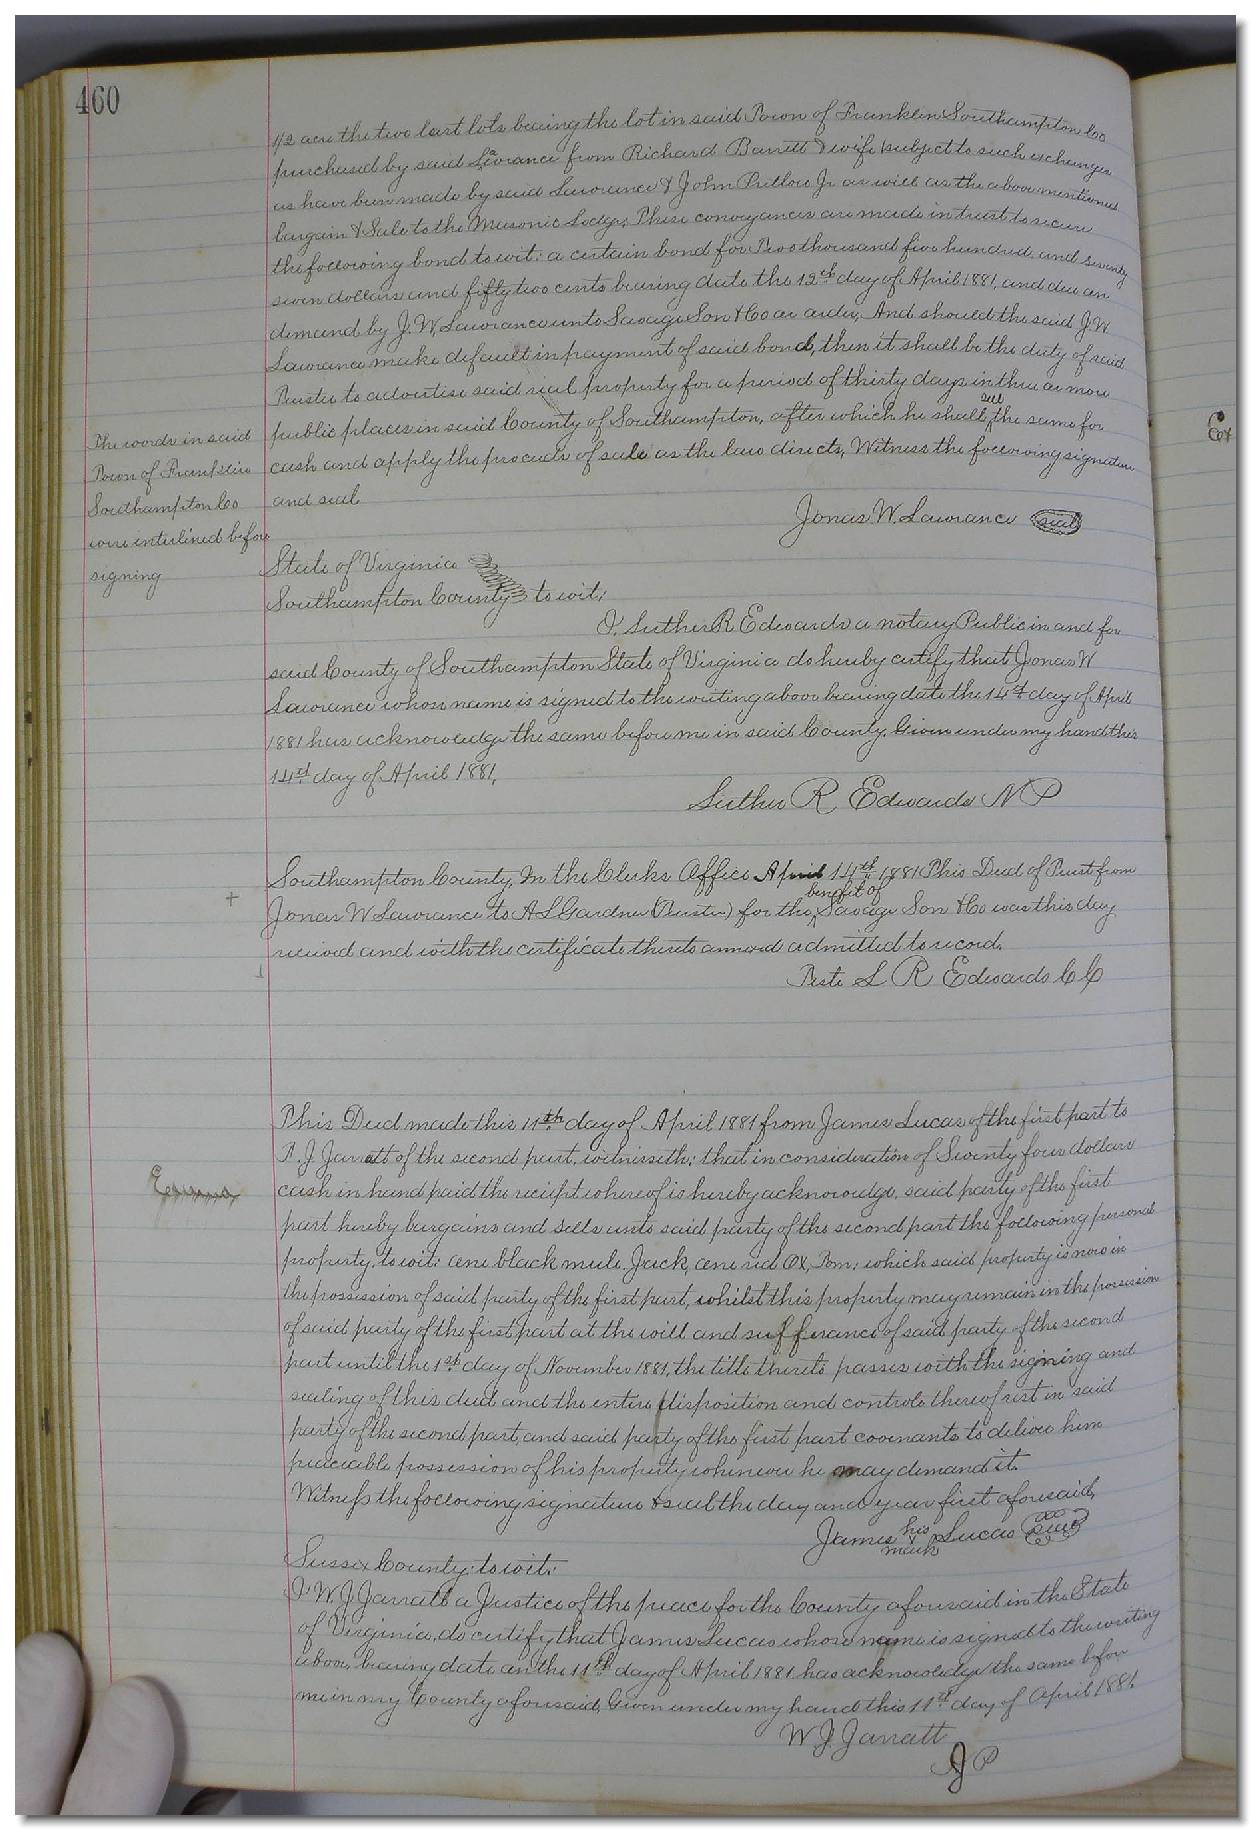 460
1/2 acre the two last lots being the lot in said Town of Franklin Southampton Co
purchased by said Lawrance from Richard Barrett & wife subject to such exchanges
as have been made by said Lawrance & John Pretlow Jr as well as the above mentioned
bargain & Sale to the Masonic Lodge, These conveyances are made in trust to secure
the following bond to wit: a certain bond for Two thousand five hundred and seventy
seven dollars and fifty two cents bearing date the 12th day of April 1881, and due on
demand by J. W. Lawrance unto Savage Son & Co or order, And should the said J. W.
Lawrance make default in payment of said bond, then it shall be the duty of said
Trustee to advertise said real property for a period of thirty days in three or more
public places in said County of Southampton, after which he shall sell the same for
cash and apply the proceeds of sale as the law directs, Witness the following signature
and seal
The words in said
Town of Franklin
Southampton Co
were interlined before
signing
Jonas W. Lawrance seal
State of Virginia
Southampton County to wit:
I, Luther R Edwards a notary Public in and for
said County of Southampton State of Virginia do hereby certify that Jonas W
Lawrance whose name is signed to the writing above bearing date the 14th day of April
1881 has acknowledge the same before me in said County. Given under my hand this
14th day of April 1881.
Luther R Edwards N P
Southampton County, In the Clerks Office April 14th 1881 This Deed of Trust from
Jonas W Lawrance to A L Gardner (Trustee) for the benefit of Savage Son & Co was this day
received and with the certificate thereto annexed admitted to record.
Teste L R Edwards C C
This Deed made this 11th day of April 1881 from James Lucas of the first part to
A. J Jarratt of the second part, witnesseth; that in consideration of Seventy four dollars
cash in hand paid the reciept whereof is hereby acknowledge, said party of the first
part hereby bargains and sells unto said party of the second part the following personal
property, to wit: one black mule Jack, one red Ox, Tom; which said property is now in
the possession of said party of the first part, whilst this property may remain in the possession
of said party of the first part at the will and sufferance of said party of the second
part until the 1st day of November 1881, the title thereto passes with the signing and
sealing of this deed and the entire disposition and controle thereof rest in said
party of the second part, and said party of the first part covenants to deliver him
peaceable possession of his property whenever he may demand it.
Witness the following signature & seal the day and year first aforesaid,
James his mark Lucas seal
Sussex County: to wit:
I W. J. Jarratt a Justice of the peace for the County aforesaid in the State
of Virginia, do certify that James Lucas whose name is signed to the writing
above, bearing date on the 11th day of April 1881 has acknowledge the same before
me in my County aforesaid, Given under my hand this 11th day of April 1881.
W J Jarratt
J P